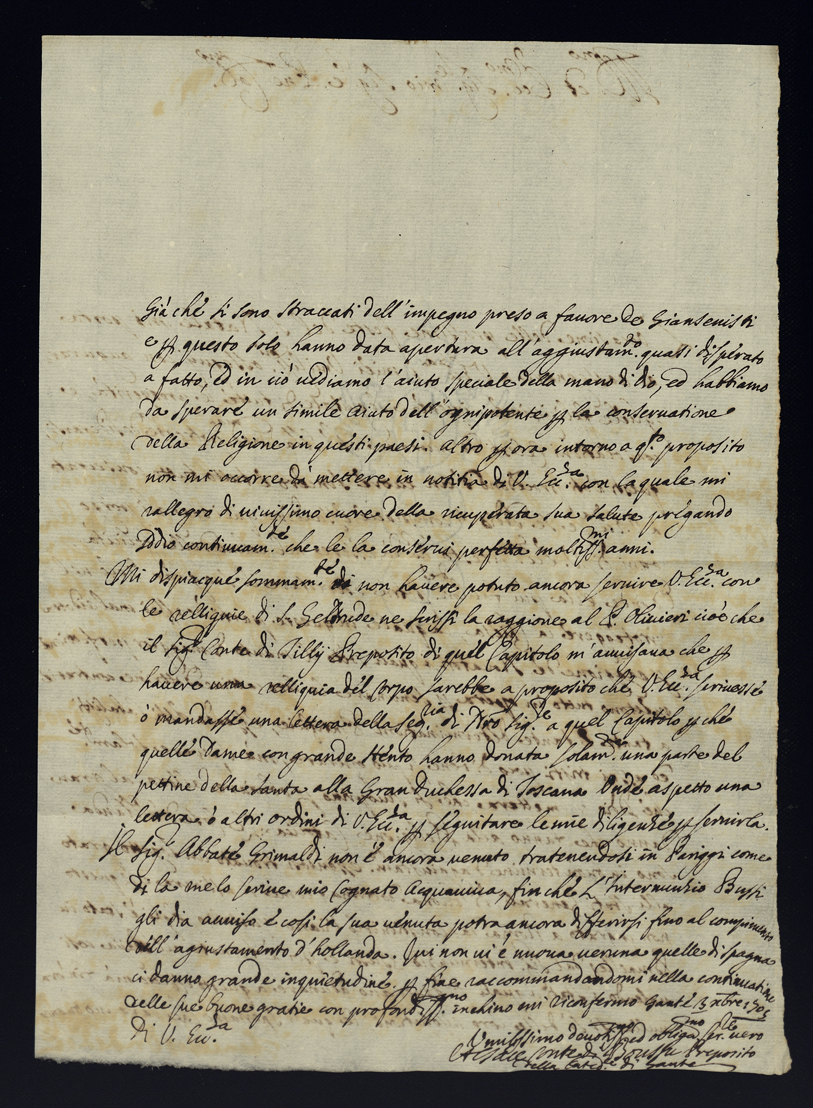 Già che si sono straccati dell'impegno preso a favore de Giansenisti
e p questo solo hanno data apertura all'aggiustam.to quasi disperato
a fatto, ed in ciò vediamo l'aiuto speciale della mano di dio, ed habbiamo
da sperare un simile aiuto dell'ognipotente p la conservatione
della Religione in questi paesi. altro p ora intorno a q.sto proposito
non mi occorre da mettere in notitia di V. Ecc.za con la quale mi
rallegro di vivissimo cuore della ricuperata sua salute pregando
Iddio continuam.te che le la conservi perfetta moltiss.mi anni.
Mi dispiacque sommam.te di non havere potuto ancora servire V. Ecc.za con
le relliquie di S. Geltrude ne scrissi la raggione al P. Olivieri cioè che
il Sig.r Conte di Tillÿ Preposito di quel Capitolo m'avvisava che p
havere una relliquia del corpo sarebbe a proposito che V. Ecc.za scrivesse
ò mandasse una lettera della Seg.ria di Stato a quel Capitolo p che
quelle Dame con grande stento hanno donata solam.te una parte del
pettine della santa alla Gran Duchessa di Toscana Onde aspetto una
lettera ò altri ordini di V. Ecc.za p seguitare le mie diligenze p servirla.
Il Sig.r Abbate Grimaldi non è ancora venuto, tratenendosi in Pariggi come
di la me lo scrive mio Cognato Acquaviva, fin che L'Internunzio Bussi
gli dia avviso e così la sua venuta potra ancora differirsi fino al compimento
dell'agiustamento d'hollanda. Qui non vi è nuova veruna quelle di spagna
ci danno grande inquietudine p fine raccommandandomi nella continuatione
delle sue buone gratie con profondiss.mo inchino mi riconfermo Gante 13 xbre 1705
Di V. Ecc.za
Umilissimo devotiss.mo ed obligatiss.mo ser.re vero
Conte di Preposito
della Cated.le di Gante